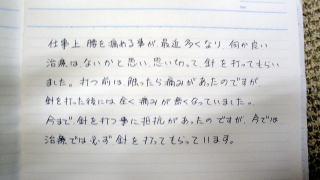 仕事上 腰を痛める事が最近多くなり、何か良い
治療はないかと思い、思い切って針を打ってもらい
ました。打つ前は、触ったら痛みがあったのですが、
針を打った後には全く痛みが無くなっていました。
今まで、針を打つ事に抵抗があったのですが、今では
治療では必ず針を打ってもらっています。